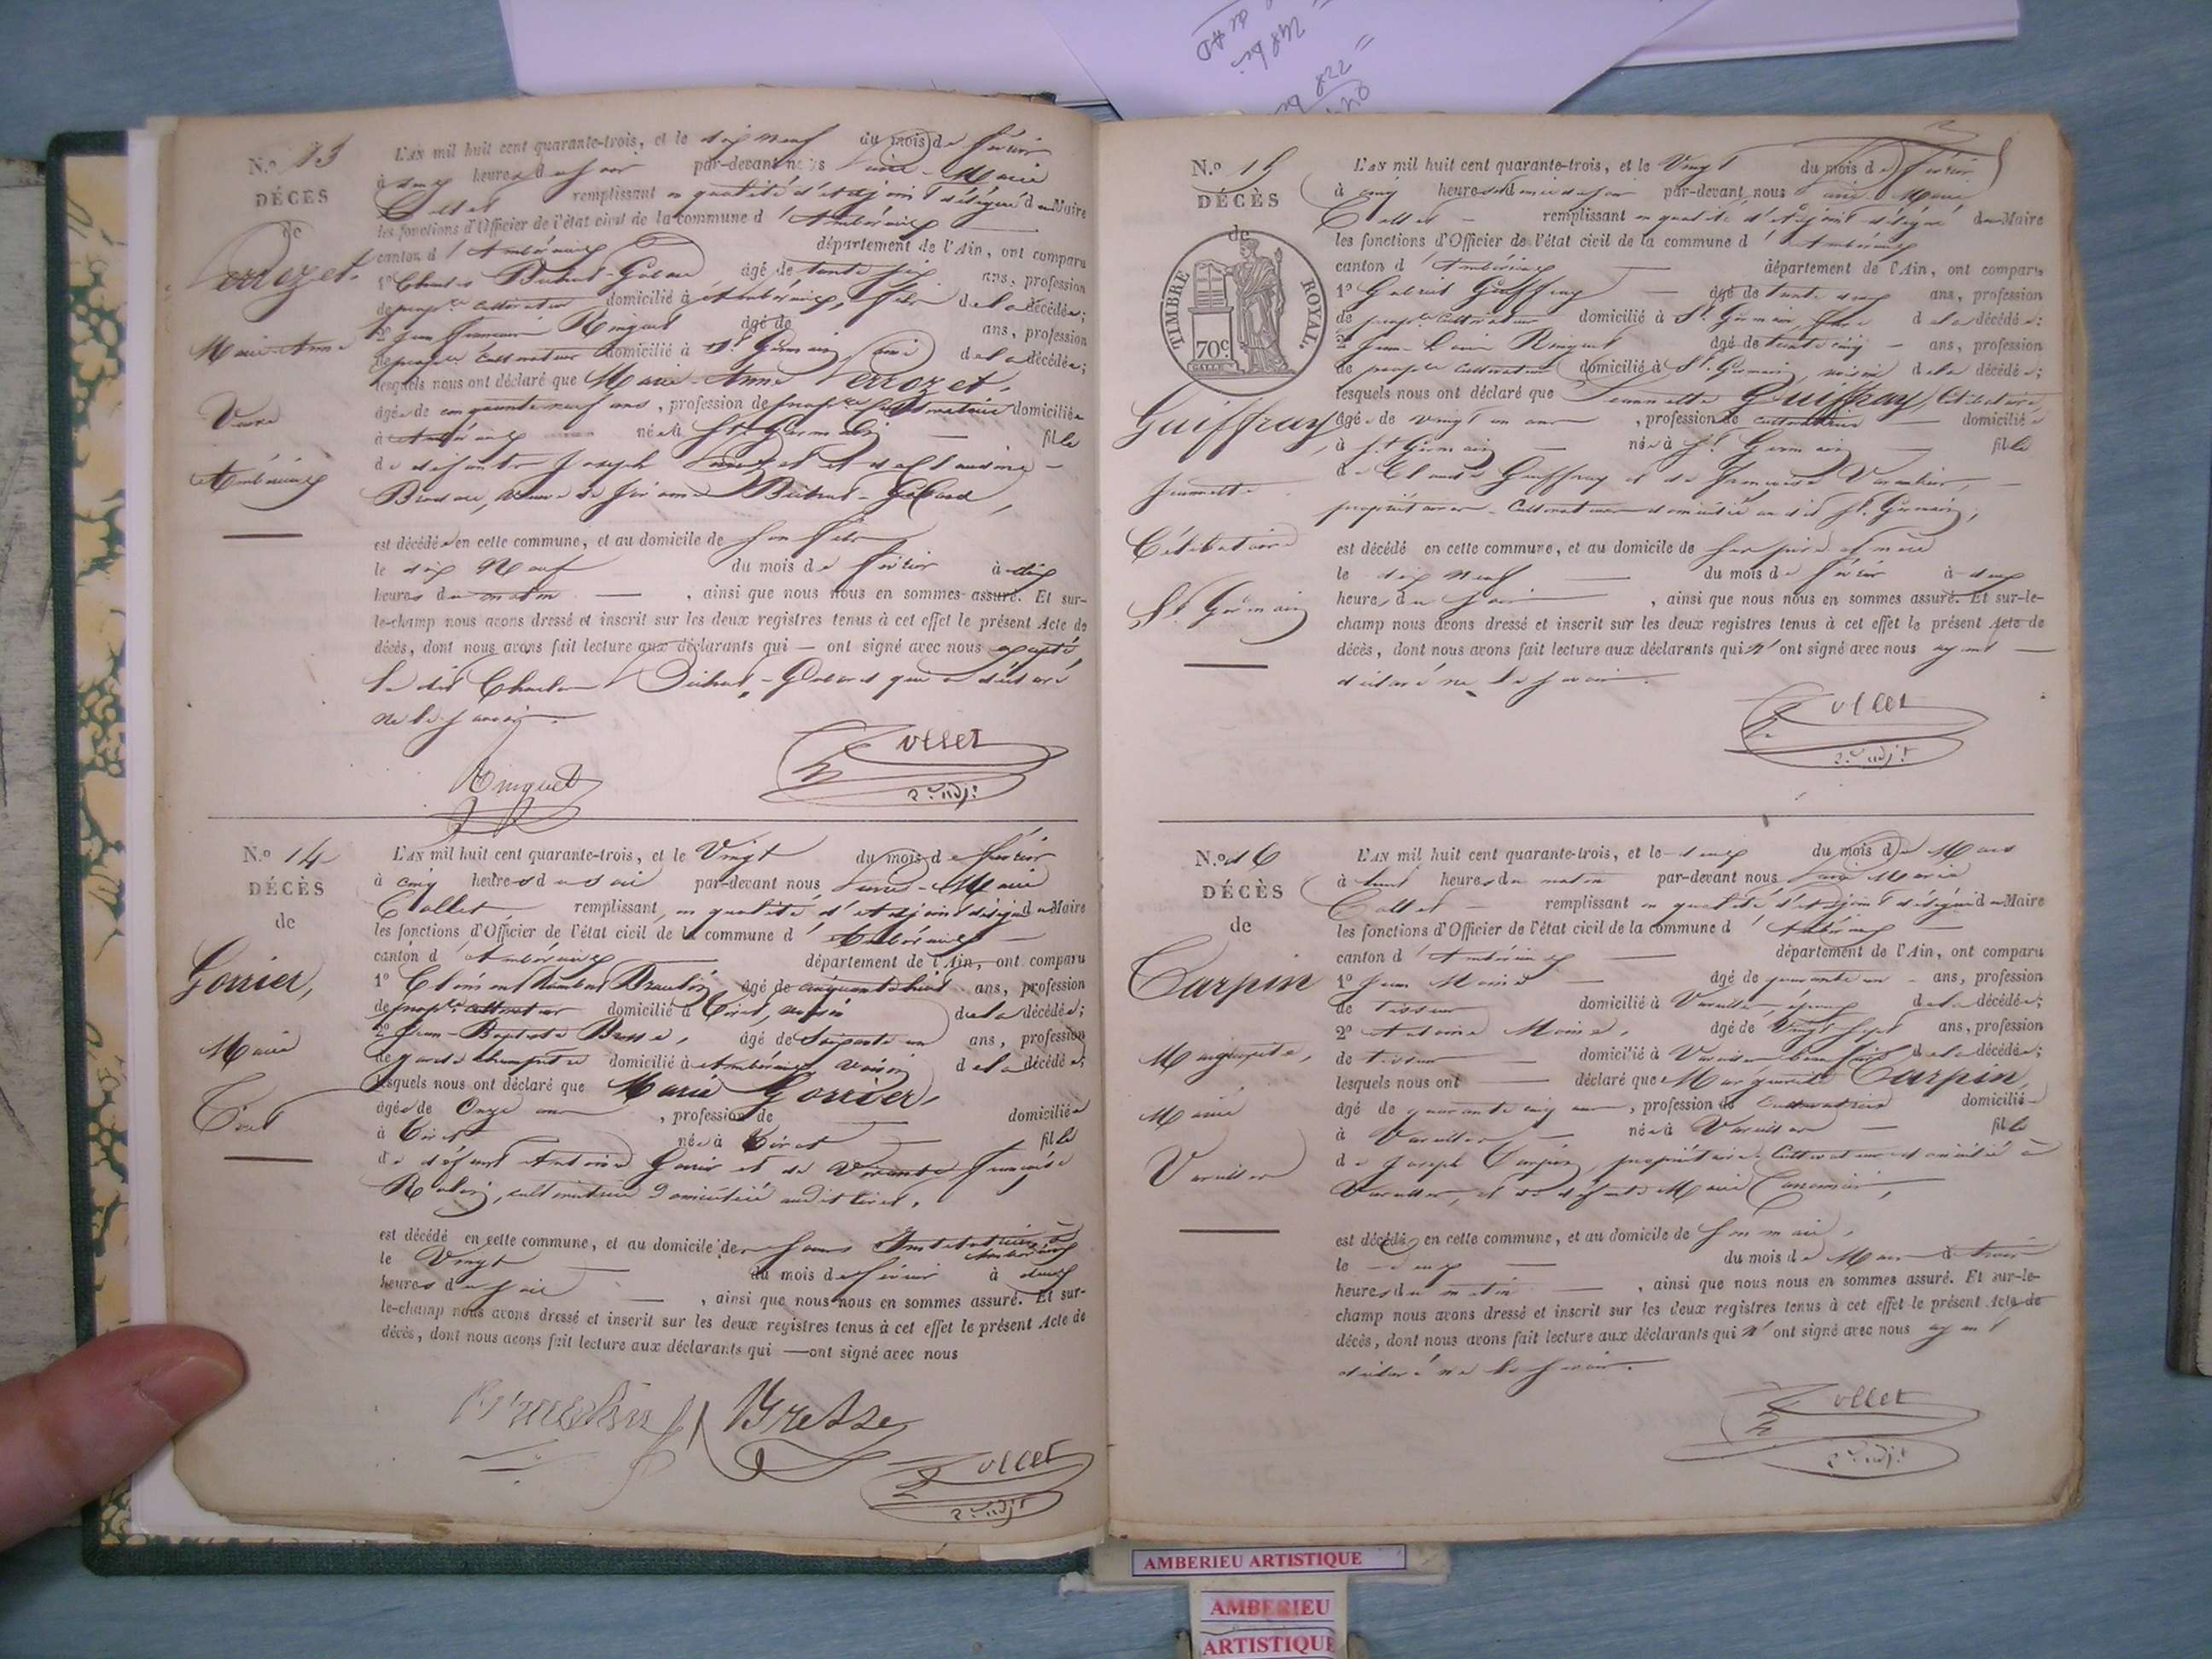 N.o 13
DÉCÈS
de
Verrozet.
Marie-Anne
Veuve
Ambérieux
L'AN mil huit cent quarante-trois, et le dix neuf du mois de février
à cinq heures du soir par-devant nous Marie
Collet remplissant en qualité d'adjoint délégué du Maire
les fonctions d'Officier de l'état civil de la commune d'Ambérieux
canton d'Ambérieux département de l'Ain, ont comparu
1° Charles âgé de trente six ans, profession
de propre cultivateur domicilié à Ambérieux, fils de la décédée;
2° Jean Ringuet âgé de ans, profession
de propre cultivateur domicilié à St Germain, ami de la décédée;
lesquels nous ont déclaré que Marie-Anne Verrozet.
âgée de cinquante neuf ans, profession de propre cultivatrice domiciliée
à Ambérieux née à St Germain fille
de défunts Joseph et de Claudine
veuve de
est décédée en cette commune, et au domicile de son fils
le dix Neuf du mois de février à dix
heures du matin, ainsi que nous nous en sommes assuré. Et sur-
le-champ nous avons dressé et inscrit sur les deux registres tenus à cet effet le présent Acte de
décès, dont nous avons fait lecture aux déclarants qui — ont signé avec nous excepté
le dit Charles qui a déclaré
ne le savoir.
Ringuet
Collet
2e adjt
N.o 14
DÉCÈS
de
Gorrier,
Marie
Tiret
L'AN mil huit cent quarante-trois, et le Vingt du mois de février
à cinq heures du soir par-devant nous Marie
Collet remplissant, en qualité d'adjoint délégué du Maire
les fonctions d'Officier de l'état civil de la commune d'Ambérieux
canton d'Ambérieux département de l'Ain, ont comparu
1° âgé de cinquante huit ans, profession
de propre cultivateur domicilié à Tiret, voisin de la décédée;
2° Jean-Baptiste Bresse, âgé de Soixante un ans, profession
de garde champêtre domicilié à Ambérieux, voisin de la décédée;
lesquels nous ont déclaré que Marie Gorrier,
âgée de Onze ans, profession de domiciliée
à Tiret née à Tiret fille
de défunt Antoine Gorrier et de Vivante Françoise
cultivatrice domiciliée audit Tiret.
est décédé en cette commune, et au domicile de
le Vingt du mois de février à deux
heures du soir, ainsi que nous nous en sommes assuré. Et sur-
le-champ nous avons dressé et inscrit sur les deux registres tenus à cet effet le présent Acte de
décès, dont nous avons fait lecture aux déclarants qui — ont signé avec nous
Bresse
Collet
2e adjt
N.o 15
DÉCÈS
de
TIMBRE ROYAL.
70c
Guiffray
Jeannette
Célibataire
St Germain
L'AN mil huit cent quarante-trois, et le Vingt du mois de février
à cinq heures du soir par-devant nous Marie
Collet remplissant en qualité d'adjoint délégué du Maire
les fonctions d'Officier de l'état civil de la commune d'Ambérieux
canton d'Ambérieux département de l'Ain, ont comparu
1° Gabriel Guiffray âgé de trente deux ans, profession
de propre cultivateur domicilié à St Germain, frère de la décédée;
2° Jean-Louis Ringuet âgé de trente cinq ans, profession
de propre cultivateur domicilié à St Germain, voisin de la décédée;
lesquels nous ont déclaré que Jeannette Guiffray, Célibataire,
âgée de vingt un ans, profession de cultivatrice domiciliée
à St Germain née à St Germain fille
de Claude Guiffray et de Françoise
propriétaires-Cultivateurs domiciliés au dit St Germain;
est décédé en cette commune, et au domicile de ses père et mère
le dix neuf du mois de février à deux
heures du soir, ainsi que nous nous en sommes assuré. Et sur-le-
champ nous avons dressé et inscrit sur les deux registres tenus à cet effet le présent Acte de
décès, dont nous avons fait lecture aux déclarants qui n'ont signé avec nous ayant
déclaré ne le savoir.
Collet
2e adjt
N.o 16
DÉCÈS
de
Carpin
Marguerite,
Mariée
Vareilles
L'AN mil huit cent quarante-trois, et le deux du mois de Mars
à huit heures du matin par-devant nous Marie
Collet remplissant en qualité d'adjoint délégué du Maire
les fonctions d'Officier de l'état civil de la commune d'Ambérieux
canton d'Ambérieux département de l'Ain, ont comparu
1° Jean Moine âgé de quarante un ans, profession
de tisseur domicilié à Vareilles, époux de la décédée;
2° Antoine Moine, âgé de Vingt sept ans, profession
de tisseur domicilié à Vareilles, beau frère de la décédée;
lesquels nous ont déclaré que Marguerite Carpin,
âgé de quarante cinq ans, profession de Cultivatrice domiciliée
à Vareilles née à Vareilles fille
de Joseph Carpin, propriétaire-Cultivateur domicilié à
Vareilles, et de défunte Marie
est décédé en cette commune, et au domicile de son mari,
le deux du mois de Mars à trois
heures du matin, ainsi que nous nous en sommes assuré. Et sur-le-
champ nous avons dressé et inscrit sur les deux registres tenus à cet effet le présent Acte de
décès, dont nous avons fait lecture aux déclarants qui n'ont signé avec nous ayant
déclaré ne le savoir.
Collet
2e adjt
AMBERIEU ARTISTIQUE
AMBERIEU
ARTISTIQUE